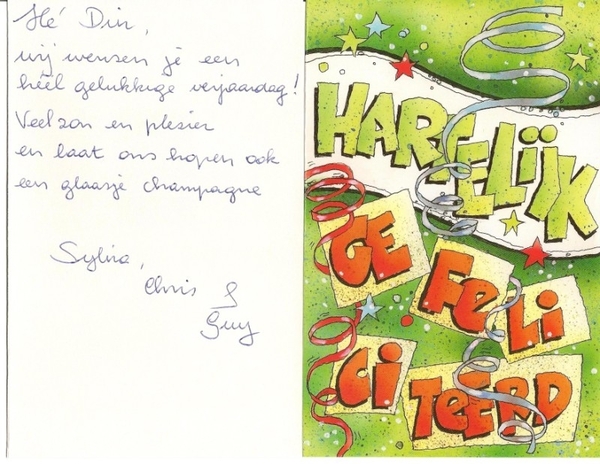 Hé Din,
wij wensen je een
héél gelukkige verjaardag!
Veel zon en plezier
en laat ons hopen ook
een glaasje champagne
Sylvia,
Chris &
Guy
HARTELIJK
GE
FELI
CI
TEERD